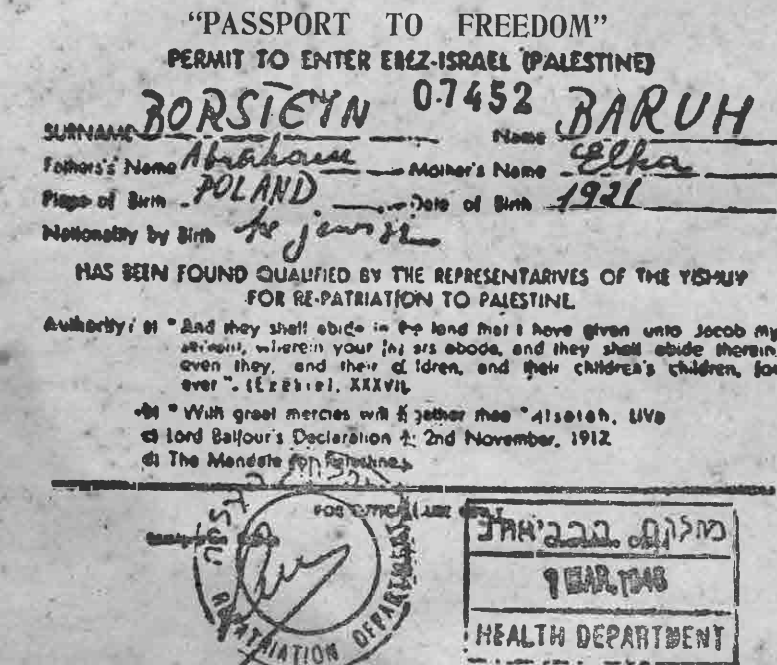 “PASSPORT TO FREEDOM”
PERMIT TO ENTER EREZ-ISRAEL (PALESTINE)
07452
SURNAME BORSTEYN Name BARUH
Fathers's Name Abraham Mother's Name Elka
Place of Birth POLAND Date of Birth 1921
Nationality by Birth jewish
HAS BEEN FOUND QUALIFIED BY THE REPRESENTARIVES OF THE YISHUV
FOR RE-PATRIATION TO PALESTINE
Authority: a) "And they shall abide in the land that I have given unto Jacob my
servant, wherein your fathers abode, and they shall abide therein,
even they, and their children, and their children's children, for
ever". (Ezekiel, XXXVII,
b) "With great mercies will I gather thee" Isaiah, LIV
c) Lord Balfour's Declaration 2nd November, 1917
d) The Mandate for Palestine
FOR OFFICIAL USE ONLY
REPATRIATION DEPARTMENT
MAR. 1948
HEALTH DEPARTMENT